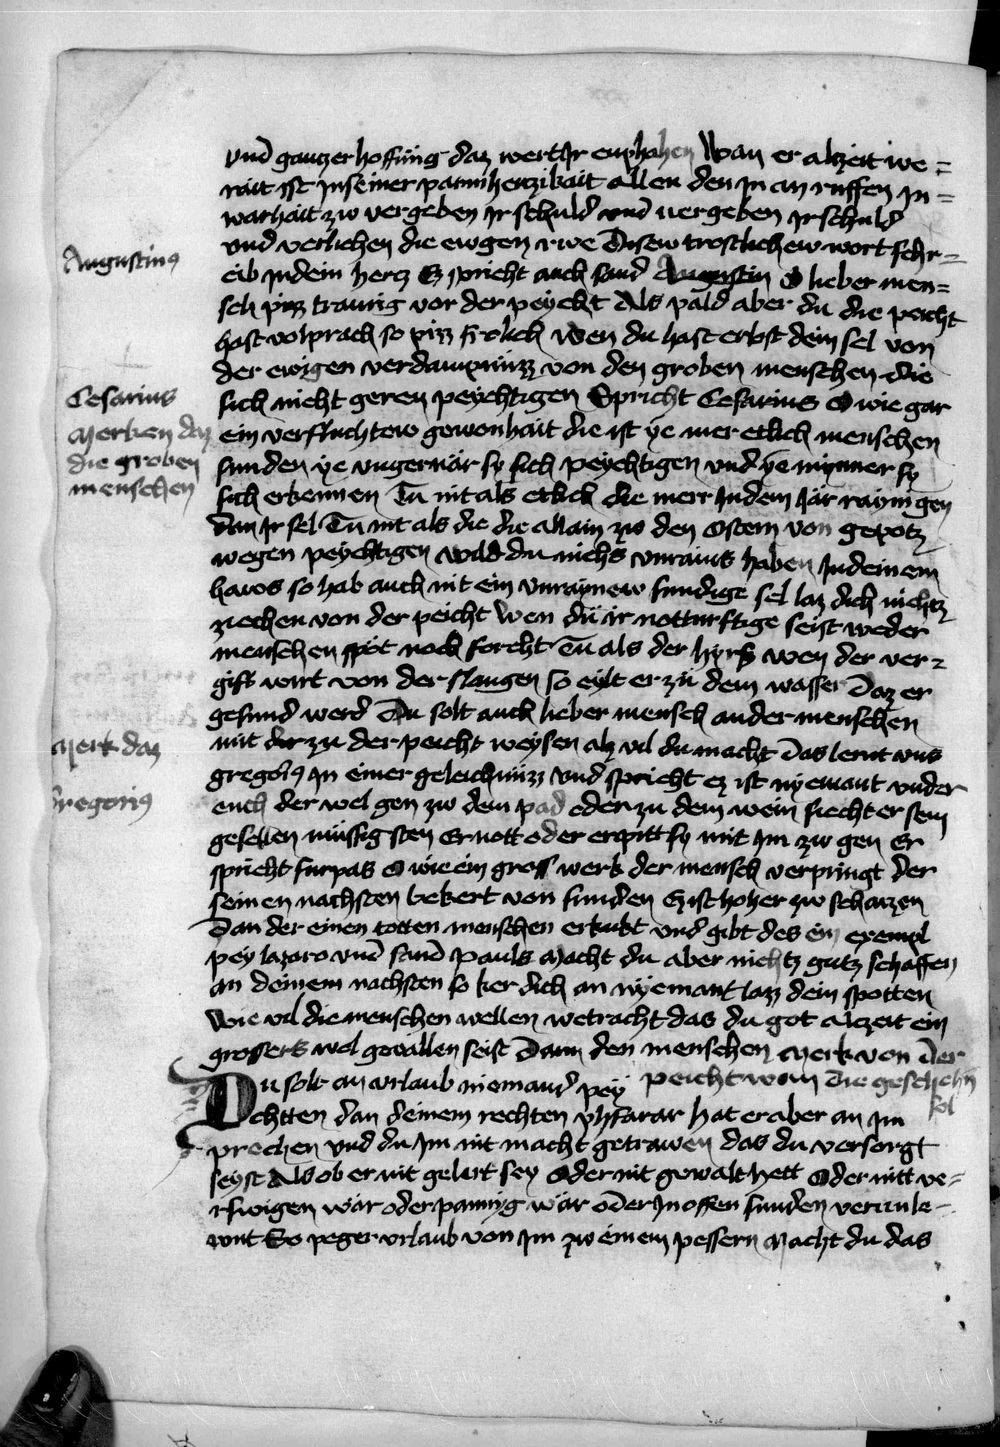 vnd gantzer hoffnüng daz wert Ir enphahen Wan er alzeit we=
rait ist In seiner parmhertzikait allen den In an ruffen In=
warhait zw vergeben Ir schuld vnd vergeben Ir schuld
vnd verlichen die ewigen rwe Disew trostlichew wort schr=
Augustinus
eib In dein hercz Er spricht auch sand Augustin O lieber men=
sch pizz traurig vor der peycht Als pald aber du die peicht
hast volprach so pizz frolich wen du hast erlost dein sel von
der ewigen verdampnüzz von den groben menschen die
Cesarius
sich nicht geren peychtigen Spricht Cesarius O wie gar
Merken daz
ein verfluchtew gewonhait die ist ye mer etlich menschen
die groben
sunden ye vngernär sy sich peychtigen vnd ye mynner sy
menschen
sich erkennen Tu nit als etlich die merr In dem Jar rayningen
dan Ir sel Tu nit als die die allain zw den ostern von gepotz
wegen peychtigen wild du nichs vnrains haben In deinem
haws so hab auch nit ein vnraynew sundige sel laz dich nichtz
ziechen von der peicht wen du ir notturftige seist weder
menschen spot noch forcht Tu als der hyrs wen der ver=
gift wirt von der slangen so eylt er zü dem wasser Daz er
gesund werd Du solt auch lieber mensch ander menschen
Merk daz
mit dir zu der peicht weysen alz vil du macht Das lernt vns
gregorius In einer geleichnüzz vnd spricht ez ist nyemant vnder
Gregorius
euch der wel gen zw dem pad oder zu dem wein siecht er sein
gesellen müssig sten Er nott oder erpitt sy mit Im zw gen Er
spricht furpas O wie ein gross werk der mensch verpringt der
seinen nachsten bekert von sunden Ez ist hoher zw schatzen
Dan der einen totten menschen erkukt vnd gibt des ein exempl
pey lazaro vnd sand Pauls Macht du aber nichtz gutz schaffen
an deinem nachsten so ker dich an nyemant lazz dein spotten
wie vil die menschen wellen wetracht das du got alzeit ein
grossers wol gevallen seist Dann den menschen Merk von der
peicht wem die geschehn
sol
Du solt an vrlaub niemand pey
ichtten dan deinem rechten pharar hat er aber an Im
prechen vnd du Im nit macht getrawen das du versorgt
seyst Als ob er nit gelert sey Oder nit gewalt hett Oder nitt ve=
rswigen wär oder pannyg wär oder In offen sunden
wnt So peger vrlaub von Im zw einem pessern Macht du das